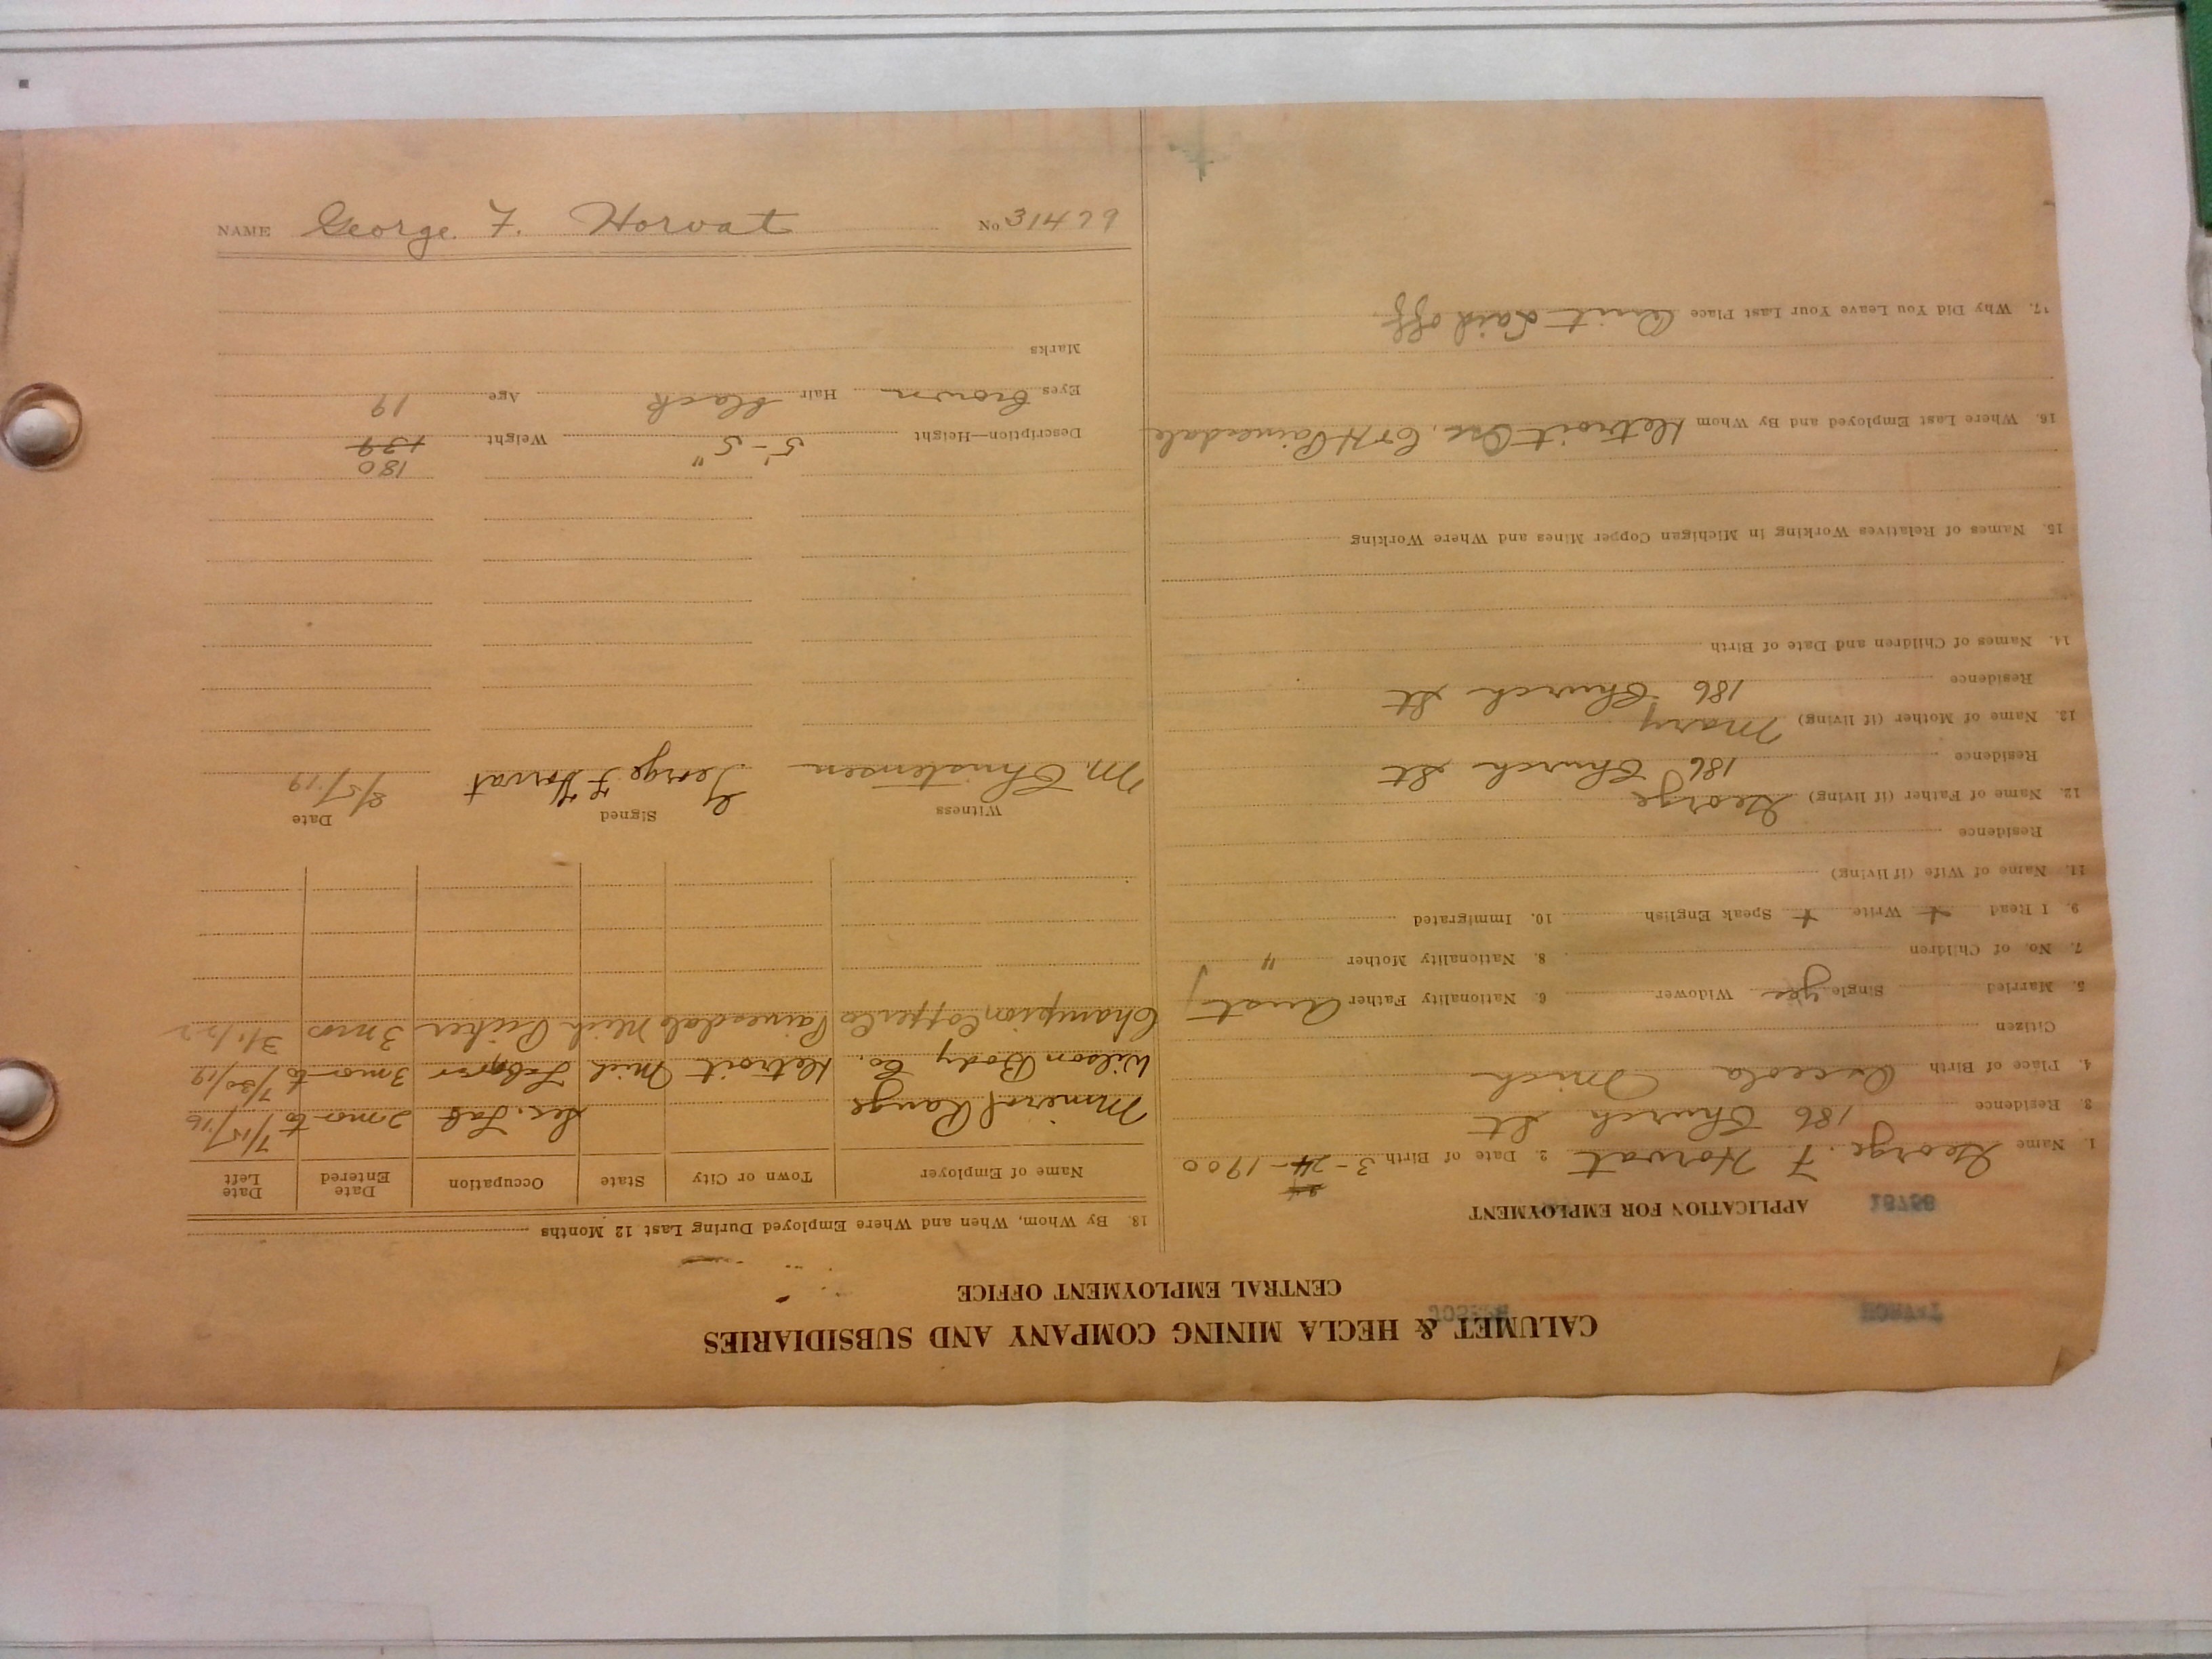 CALUMET & HECLA MINING COMPANY AND SUBSIDIARIES
CENTRAL EMPLOYMENT OFFICE
APPLICATION FOR EMPLOYMENT
1. Name George. F. Horvat 2. Date of Birth 3-24-1900
3. Residence 186 Church St
4. Place of Birth Osceola Mich
Citizen
5. Married Single yes Widower 6. Nationality Father Aust
7. No. of Children 8. Nationality Mother "
9. I Read + Write + Speak English 10. Immigrated
11. Name of Wife (if living)
Residence
12. Name of Father (if living) George
Residence 186 Church St
13. Name of Mother (if living) Mary
Residence 186 Church St
14. Names of Children and Date of Birth
15. Names of Relatives Working in Michigan Copper Mines and Where Working
16. Where Last Employed and By Whom Detroit C&H Painesdale
17. Why Did You Leave Your Last Place Quit Laid off
18. By Whom, When and Where Employed During Last 12 Months
Name of Employer Town or City State Occupation Date Entered Date Left
Mineral Range Sec. Lab 2 mo to 7/15/16
Wilson Body Co. Detroit Mich Laborer 3 mo to 7/30/19
Champion Copper Co Painesdale Mich Picker 3 mos 3/1/22
Witness Signed Date
M. Christensen George F Horvat 8/5/19
180
Description—Height 5'-5" Weight 139
Eyes Brown Hair black Age 19
Marks
NAME George F. Horvat No 31479